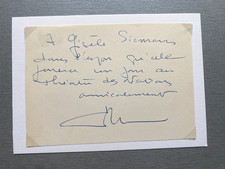 A Gisèle Siemans
dans l'espoir qu'elle
jouera un jour au
théâtre des
amicalement